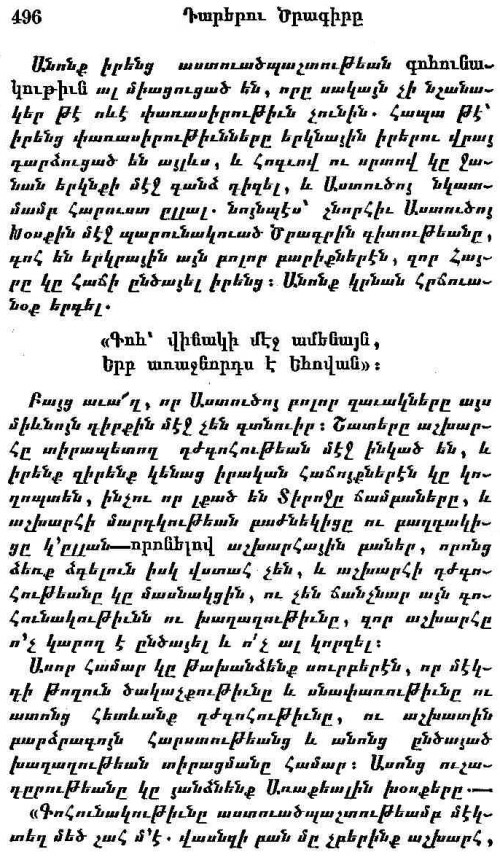 496 Դարերու Ծրագիրը
Անոնք իրենց աստուածպաշտութեան գոհունա-
կութիւն ալ միացուցած են, որը սակայն չի նշանա-
կեր թէ ոևէ փառասիրութիւն չունին. Հապա թէ՝
իրենց փառասիրութիւնները երկնային իրերու վրայ
դարձուցած են այլևս, և Հոգւով ու սրտով կը ջա-
նան երկնքի մէջ գանձ դիզել, և Աստուծոյ նկատ-
մամբ Հարուստ ըլլալ. նոյնպէս՝ չնորհիւ Աստուծոյ
Խօսքին մէջ պարունակուած Ծրագրին գիտութեանը,
գոհ են երկրային այն բոլոր բարիքներէն, զոր Հայ-
րը կը Հաճի ընծայել իրենց: Անոնք կրնան Հրճուա-
նօք երգել.
«Գոհ՝ վիճակի մէջ ամենայն,
Երբ առաջնորդս է Եհովան»:
Բայց աւա՜ղ, որ Աստուծոյ բոլոր զաւակները այս
միևնոյն դիրքին մէջ չեն գտնուիր: Շատերը աշխար-
Հը տիրապետող դժգոհութեան մէջ ինկած են, և
իրենք զիրենք կենաց իրական Հաճոյքներէն կը կո-
ղոպտեն, ինչու որ լքած են Տիրոջը ճամբաները, և
աշխարհի մարդկութեան բաժնեկիցը ու բաղդակի-
ցը կ'ըլլան—որոնելով աշխարհային բաներ, որոնց
ձեռք ձգելուն իսկ վստահ չեն, և աշխարհի դժգո-
Հութեանը կը մասնակցին, ու չեն ճանչնար այն գո-
Հունակութիւնն ու խաղաղութիւնը, զոր աշխարհը
ո՛չ կարող է ընծայել և ո՛չ ալ կորզել:
Ասոր Համար կը թախանձենք սուրբերէն, որ մէկ-
դի թողուն ծակաչքութիւնը և սնափառութիւնը ու
ատոնց Հետևանք դժգոհութիւնը, ու աշխատին
բարձրագոյն Հարստութեանց և անոնց ընծայած
խաղաղութեան տիրացմանը Համար: Ասոնց ուշա-
դըրութեանը կը յանձնենք Առաքեալին խօսքերը.—
«Գոհունակութիւնը աստուածպաշտութեամբ մէկ-
տեղ մեծ շահ մ'է. վասնզի բան մը չբերինք աշխարհ,